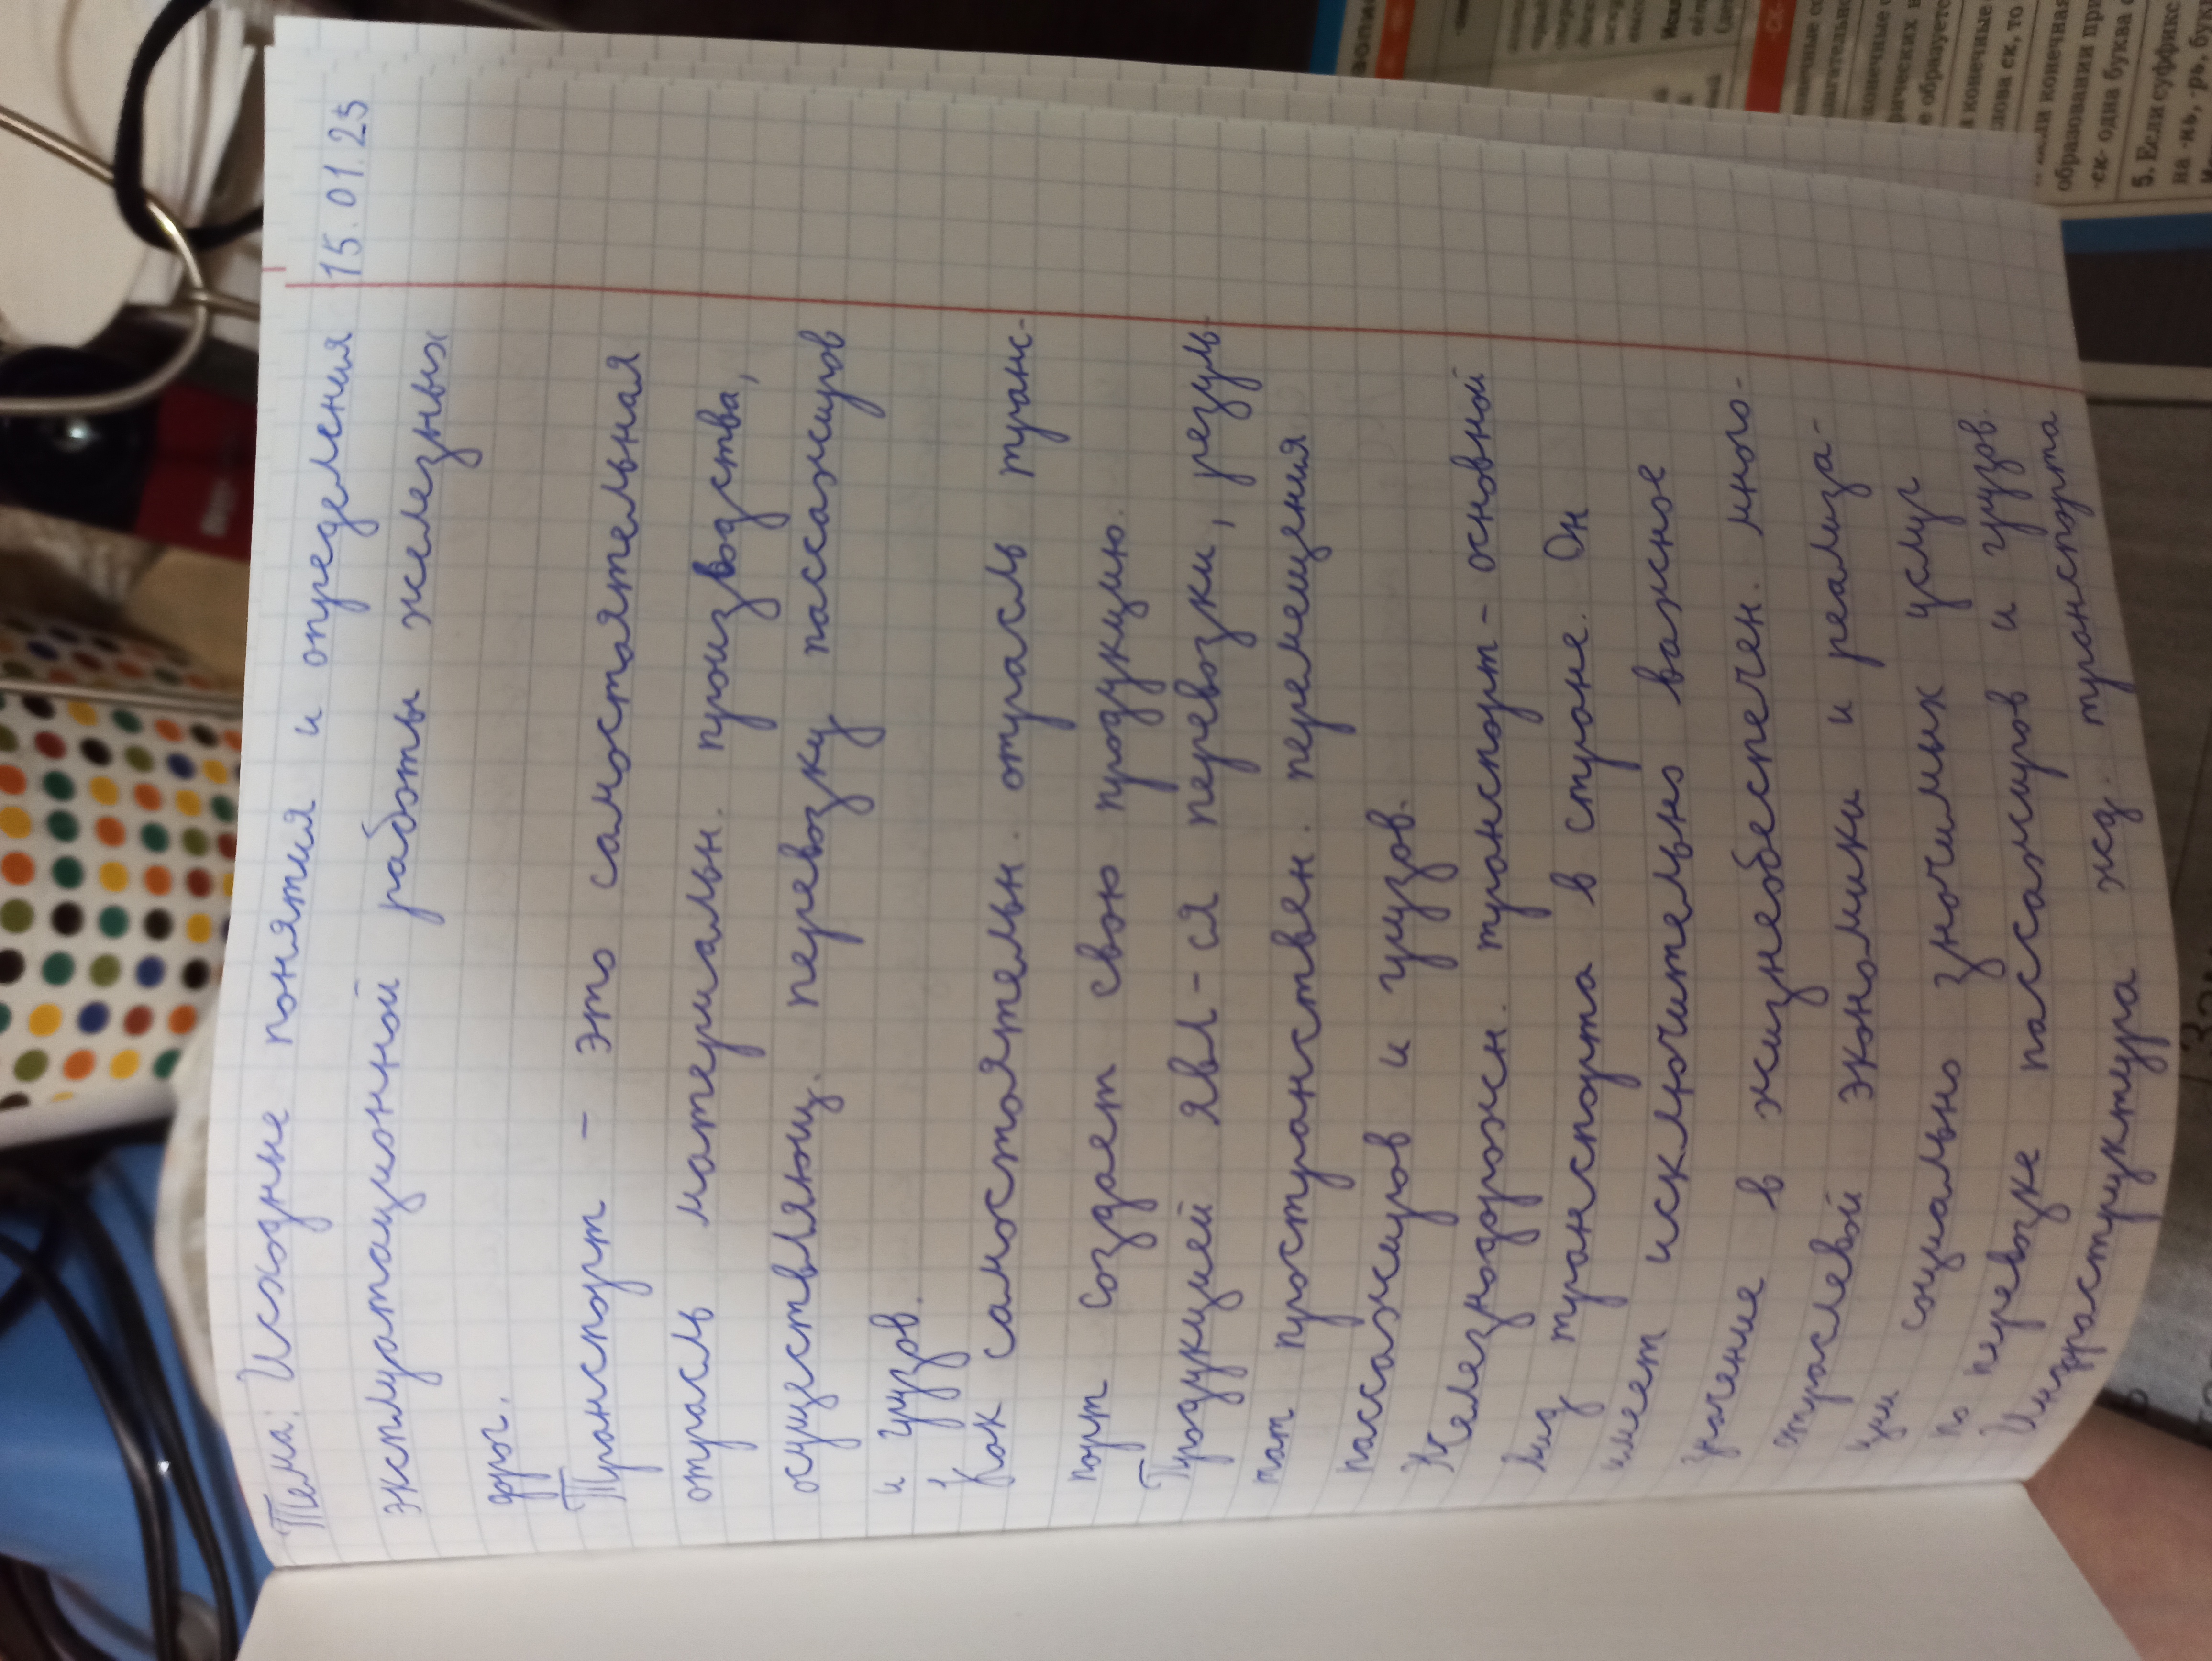 15.01.25
Тема: Исходные понятия и определения
эксплуатационной работы железных
дорог.
Транспорт - это самостоятельная
отрасль материальн. производства,
осуществляющ. перевозку пассажиров
и грузов.
Как самостоятельн. отрасль транс-
порт создает свою продукцию.
Продукцией явл-ся перевозки, резуль-
тат пространствен. перемещения
пассажиров и грузов.
Железнодорожн. транспорт - основной
вид транспорта в стране. Он
имеет исключительно важное
значение в жизнеобеспечен. много-
отраслевой экономики и реализа-
ции социально значимых услуг
по перевозке пассажиров и грузов.
Инфраструктура жд. транспорта
образования при
-ск- одна буква с
5. Если суффикс
на -нь, -рь, бук